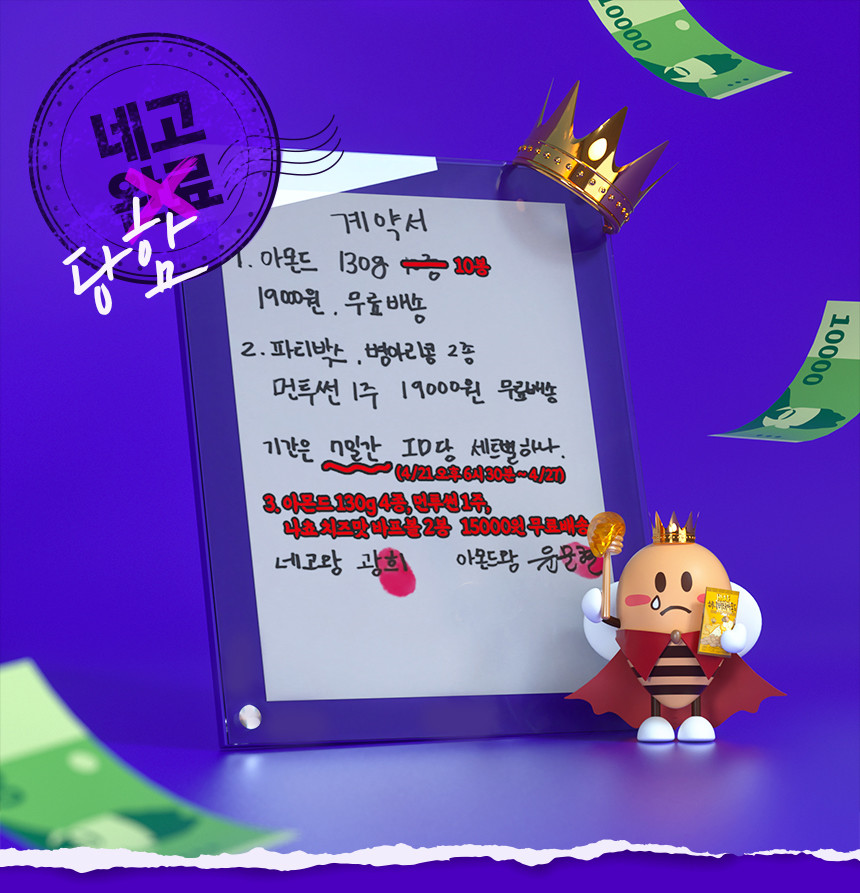 10000
네고
완료
당함
계약서
1. 아몬드 130g 10봉
1900원. 무료배송
2. 파티박스. 병아리콩 2종
먼투썬 1주 19000원 무료배송
기간은 7일간 ID당 세트별 하나.
(4/21 오후 6시 30분 ~ 4/27)
3. 아몬드 130g 4종, 먼투썬 1주,
나쵸 치즈맛 바프볼 2봉 15000원 무료배송
네고왕 광희 아몬드왕 윤문현
10000